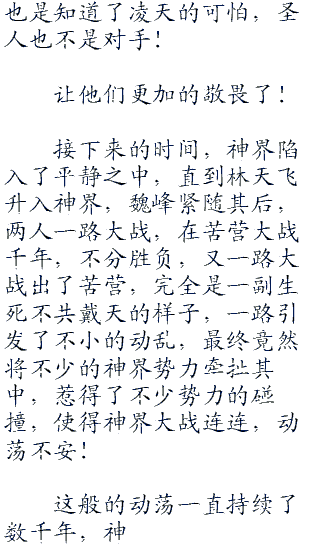 也是知道了凌天的可怕，圣
人也不是对手！
让他们更加的敬畏了！
接下来的时间，神界陷
入了平静之中，直到林天飞
升入神界，魏峰紧随其后，
两人一路大战，在苦营大战
千年，不分胜负，又一路大
战出了苦营，完全是一副生
死不共戴天的样子，一路引
发了不小的动乱，最终竟然
将不少的神界势力牵扯其
中，惹得了不少势力的碰
撞，使得神界大战连连，动
荡不安！
这般的动荡一直持续了
数千年，神